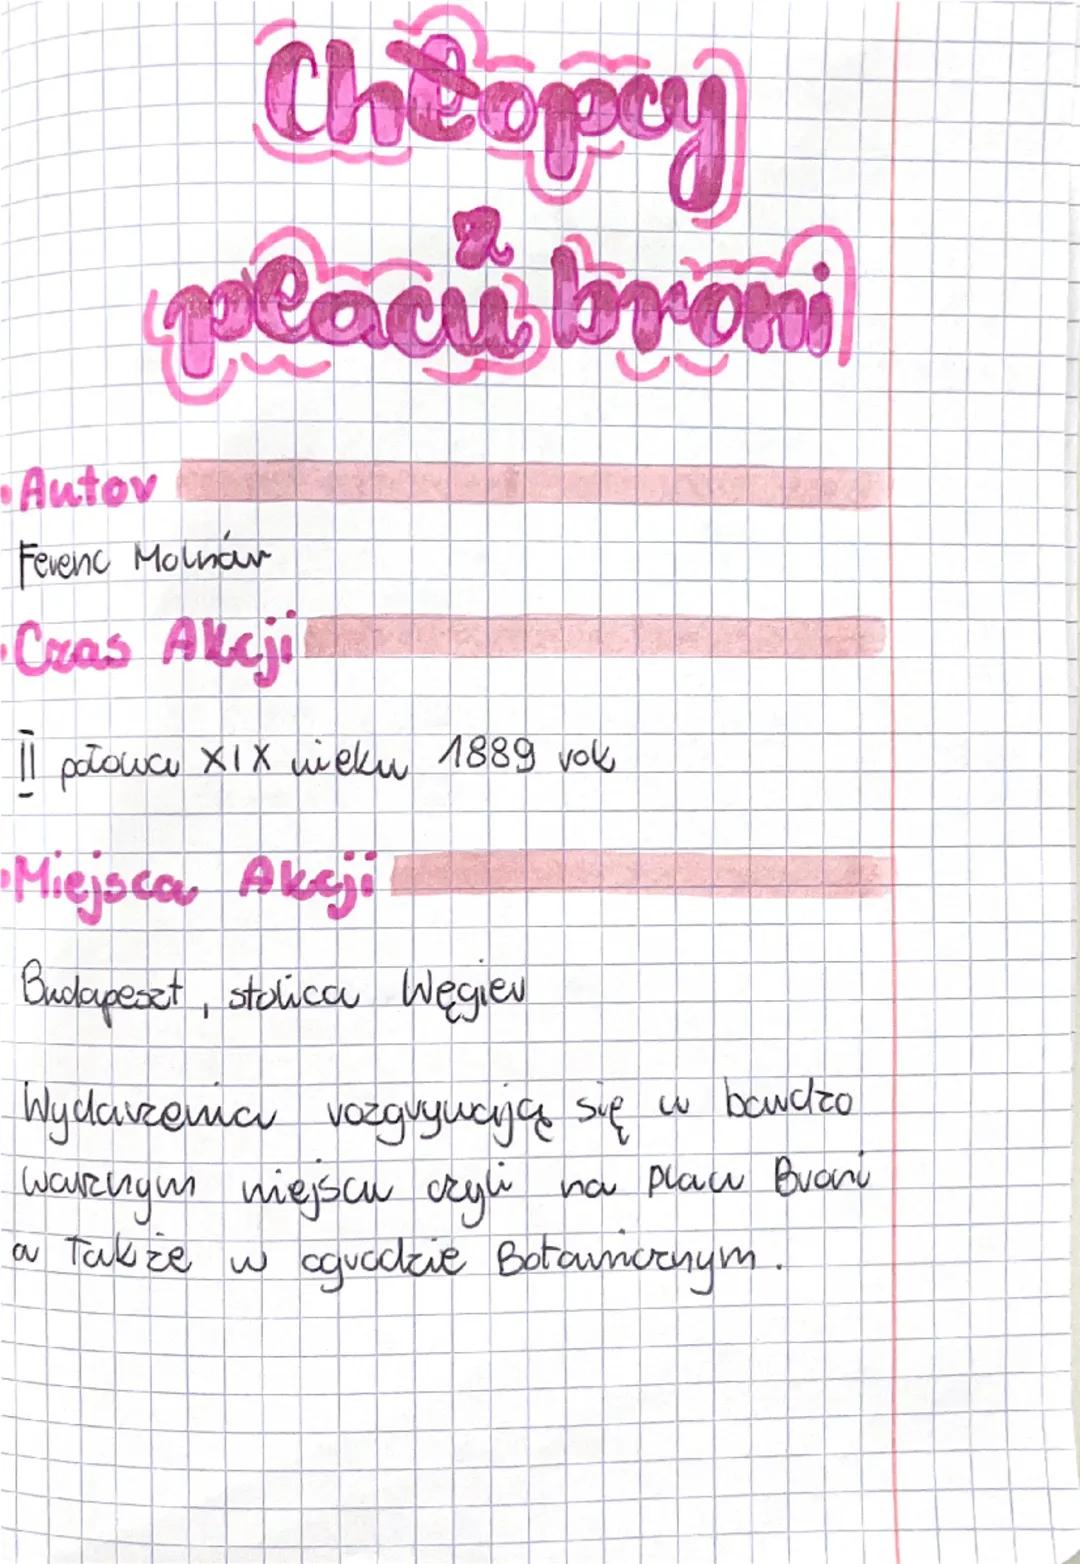 Chłopcy
z
placu broni
• Autor
Ferenc Molnár
• Czas Akcji
II połowa XIX wieku 1889 rok
• Miejsca Akcji
Budapeszt, stolica Węgier
Wydarzenia rozgrywają się w bardzo
ważnym miejscu czyli na placu Broni
a także w ogrodzie Botanicznym.